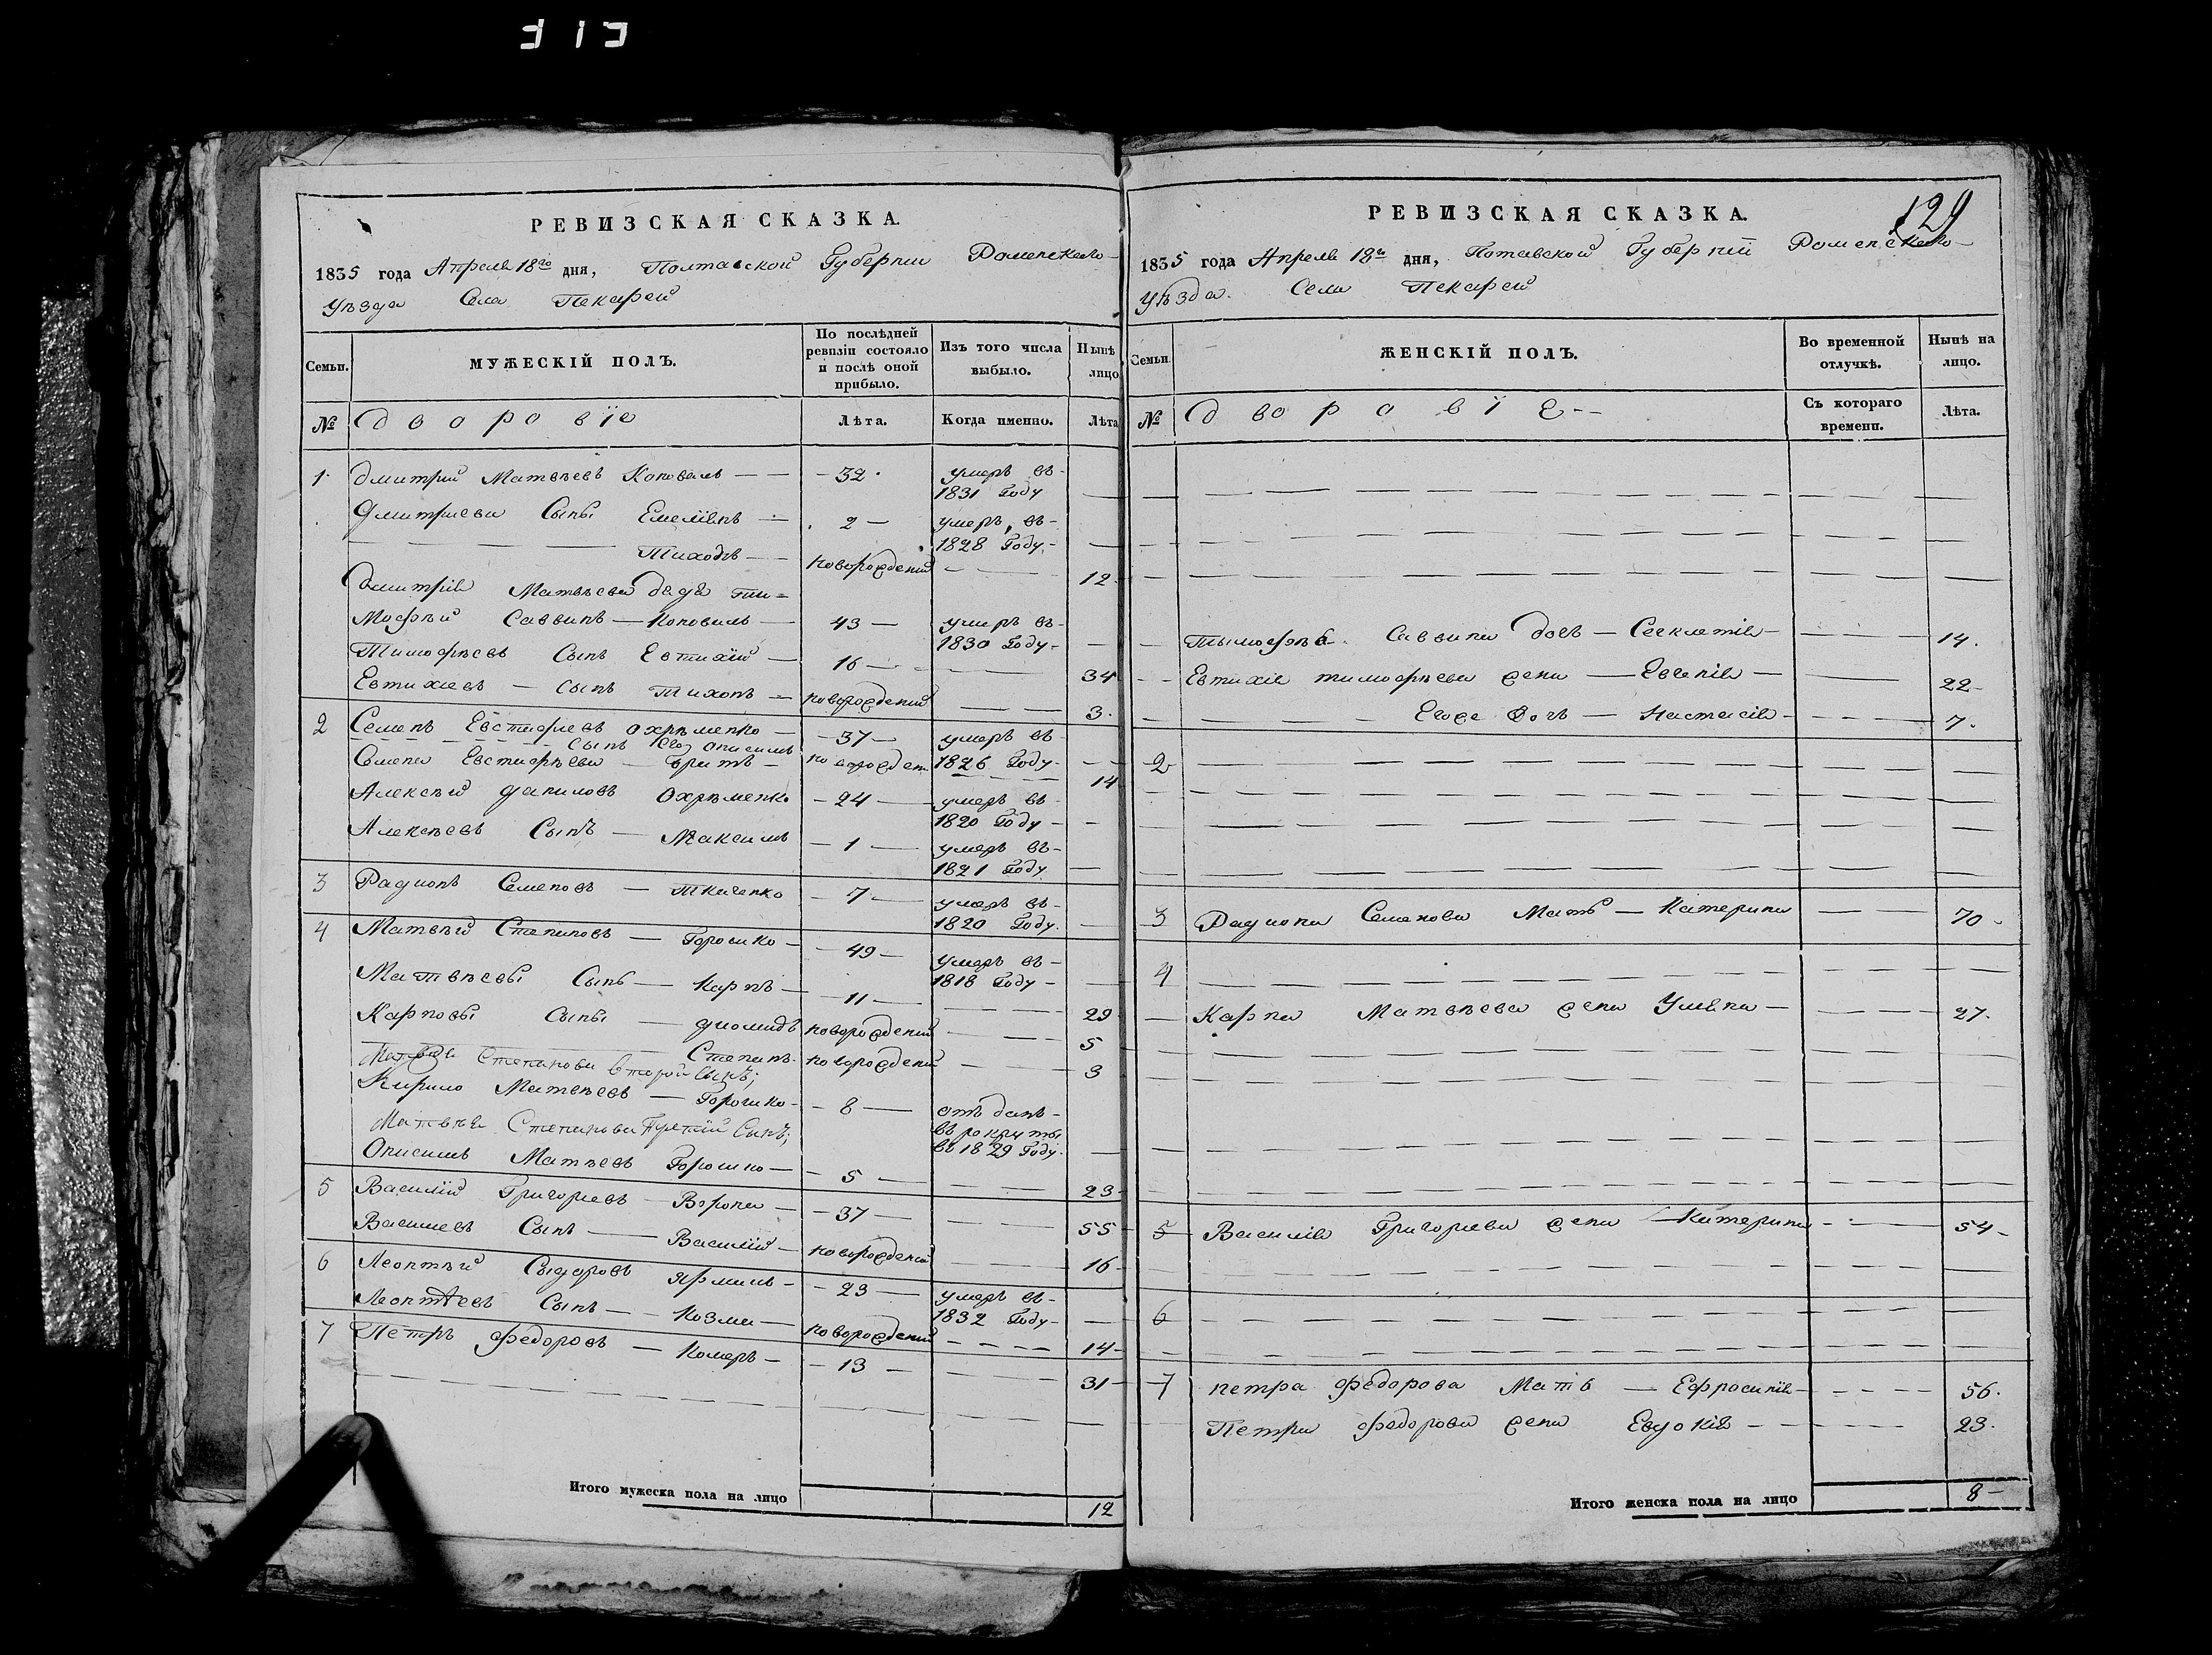 РЕВИЗСКАЯ СКАЗКА.
1835 года Апреля 18го дня, Полтавской Губернии Роменскаго
Уѣзда Села Пекарей
Семьи. МУЖЕСКІЙ ПОЛЪ. По послѣдней ревизіи состояло и послѣ оной прибыло. Изъ того числа выбыло. Нынѣ лицо
№ дворовіе Лѣта. Когда именно. Лѣта
1 Дмитрий Матвѣевъ Коноваль 32 умеръ въ
1831 Году
Дмитриева Сыны Емеліянъ 2 умеръ въ
1828 Году
Тиходъ новорождений 12
Дмитрія Матвѣева дядя Ти=
Мофѣй Саввинъ Коноваль 43 умеръ въ
1830 Году
Тимофѣевъ Сынъ Евтихій 16 34
Евтихіевъ Сынъ Тихонъ новорождений 3
2 Семенъ Евстифиевъ Охрѣменко 37 умеръ въ
Сынъ Его Онисимъ новорожден 1826 Году 14
Семена Евстифѣева братъ
Алексѣй Даниловъ Охрѣменко 24 умеръ въ
1820 Году
Алексѣевъ Сынъ Максимъ 1 умеръ въ
1821 Году
3 Радионъ Семеновъ Ткаченко 7 умеръ въ
1820 Году
4 Матвѣй Степановъ Горошко 49 умеръ въ
1818 Году
Матвѣевы Сынъ Карпъ 11 29
Карповы Сыны Диомидъ новорождений 5
Степанъ новорождений 3
Матвѣя Степанова второй Сынъ;
Кирило Матвѣевъ Горошко 8 отъ данъ
въ рокруты
въ 1829 Году
Матвѣя Степанова Третій Сынъ;
Онисимъ Матвѣевъ Горошко 5 23
5 Василій Григориевъ Ворона 37 55
Василиевъ Сынъ Василій новорожденій 16
6 Леонтѣй Сыдоровъ Ярмишъ 23 умеръ въ
1832 Году
Леонтѣевъ Сынъ Козма новорожденій 14
7 Петръ Федоровъ Комаръ 13 31
Итого мужеска пола на лицо 12
129
РЕВИЗСКАЯ СКАЗКА.
1835 года Апреля 18го дня, Потавской Губерній Роменскаго
Уѣзда. Села Пекарей
Семьи. ЖЕНСКІЙ ПОЛЪ. Во временной отлучкѣ. Нынѣ на лицо.
№ дворовіе Съ котораго времени. Лѣта.
Тымофѣя Саввина дочъ Секлетія 14.
Евтихія тимофѣева жена Евгенія 22
Егоже дочъ Настасія 7.
2
3 Радиона Семенова Мать Катерина 70
4
Карпа Матвѣева жена Уліяна 27.
5 Василія Григориева жена Катерина 54
6
7 петра федорова Мать Ефросинія 56.
Петра федорова жена Евдокія 23.
Итого женска пола на лицо 8